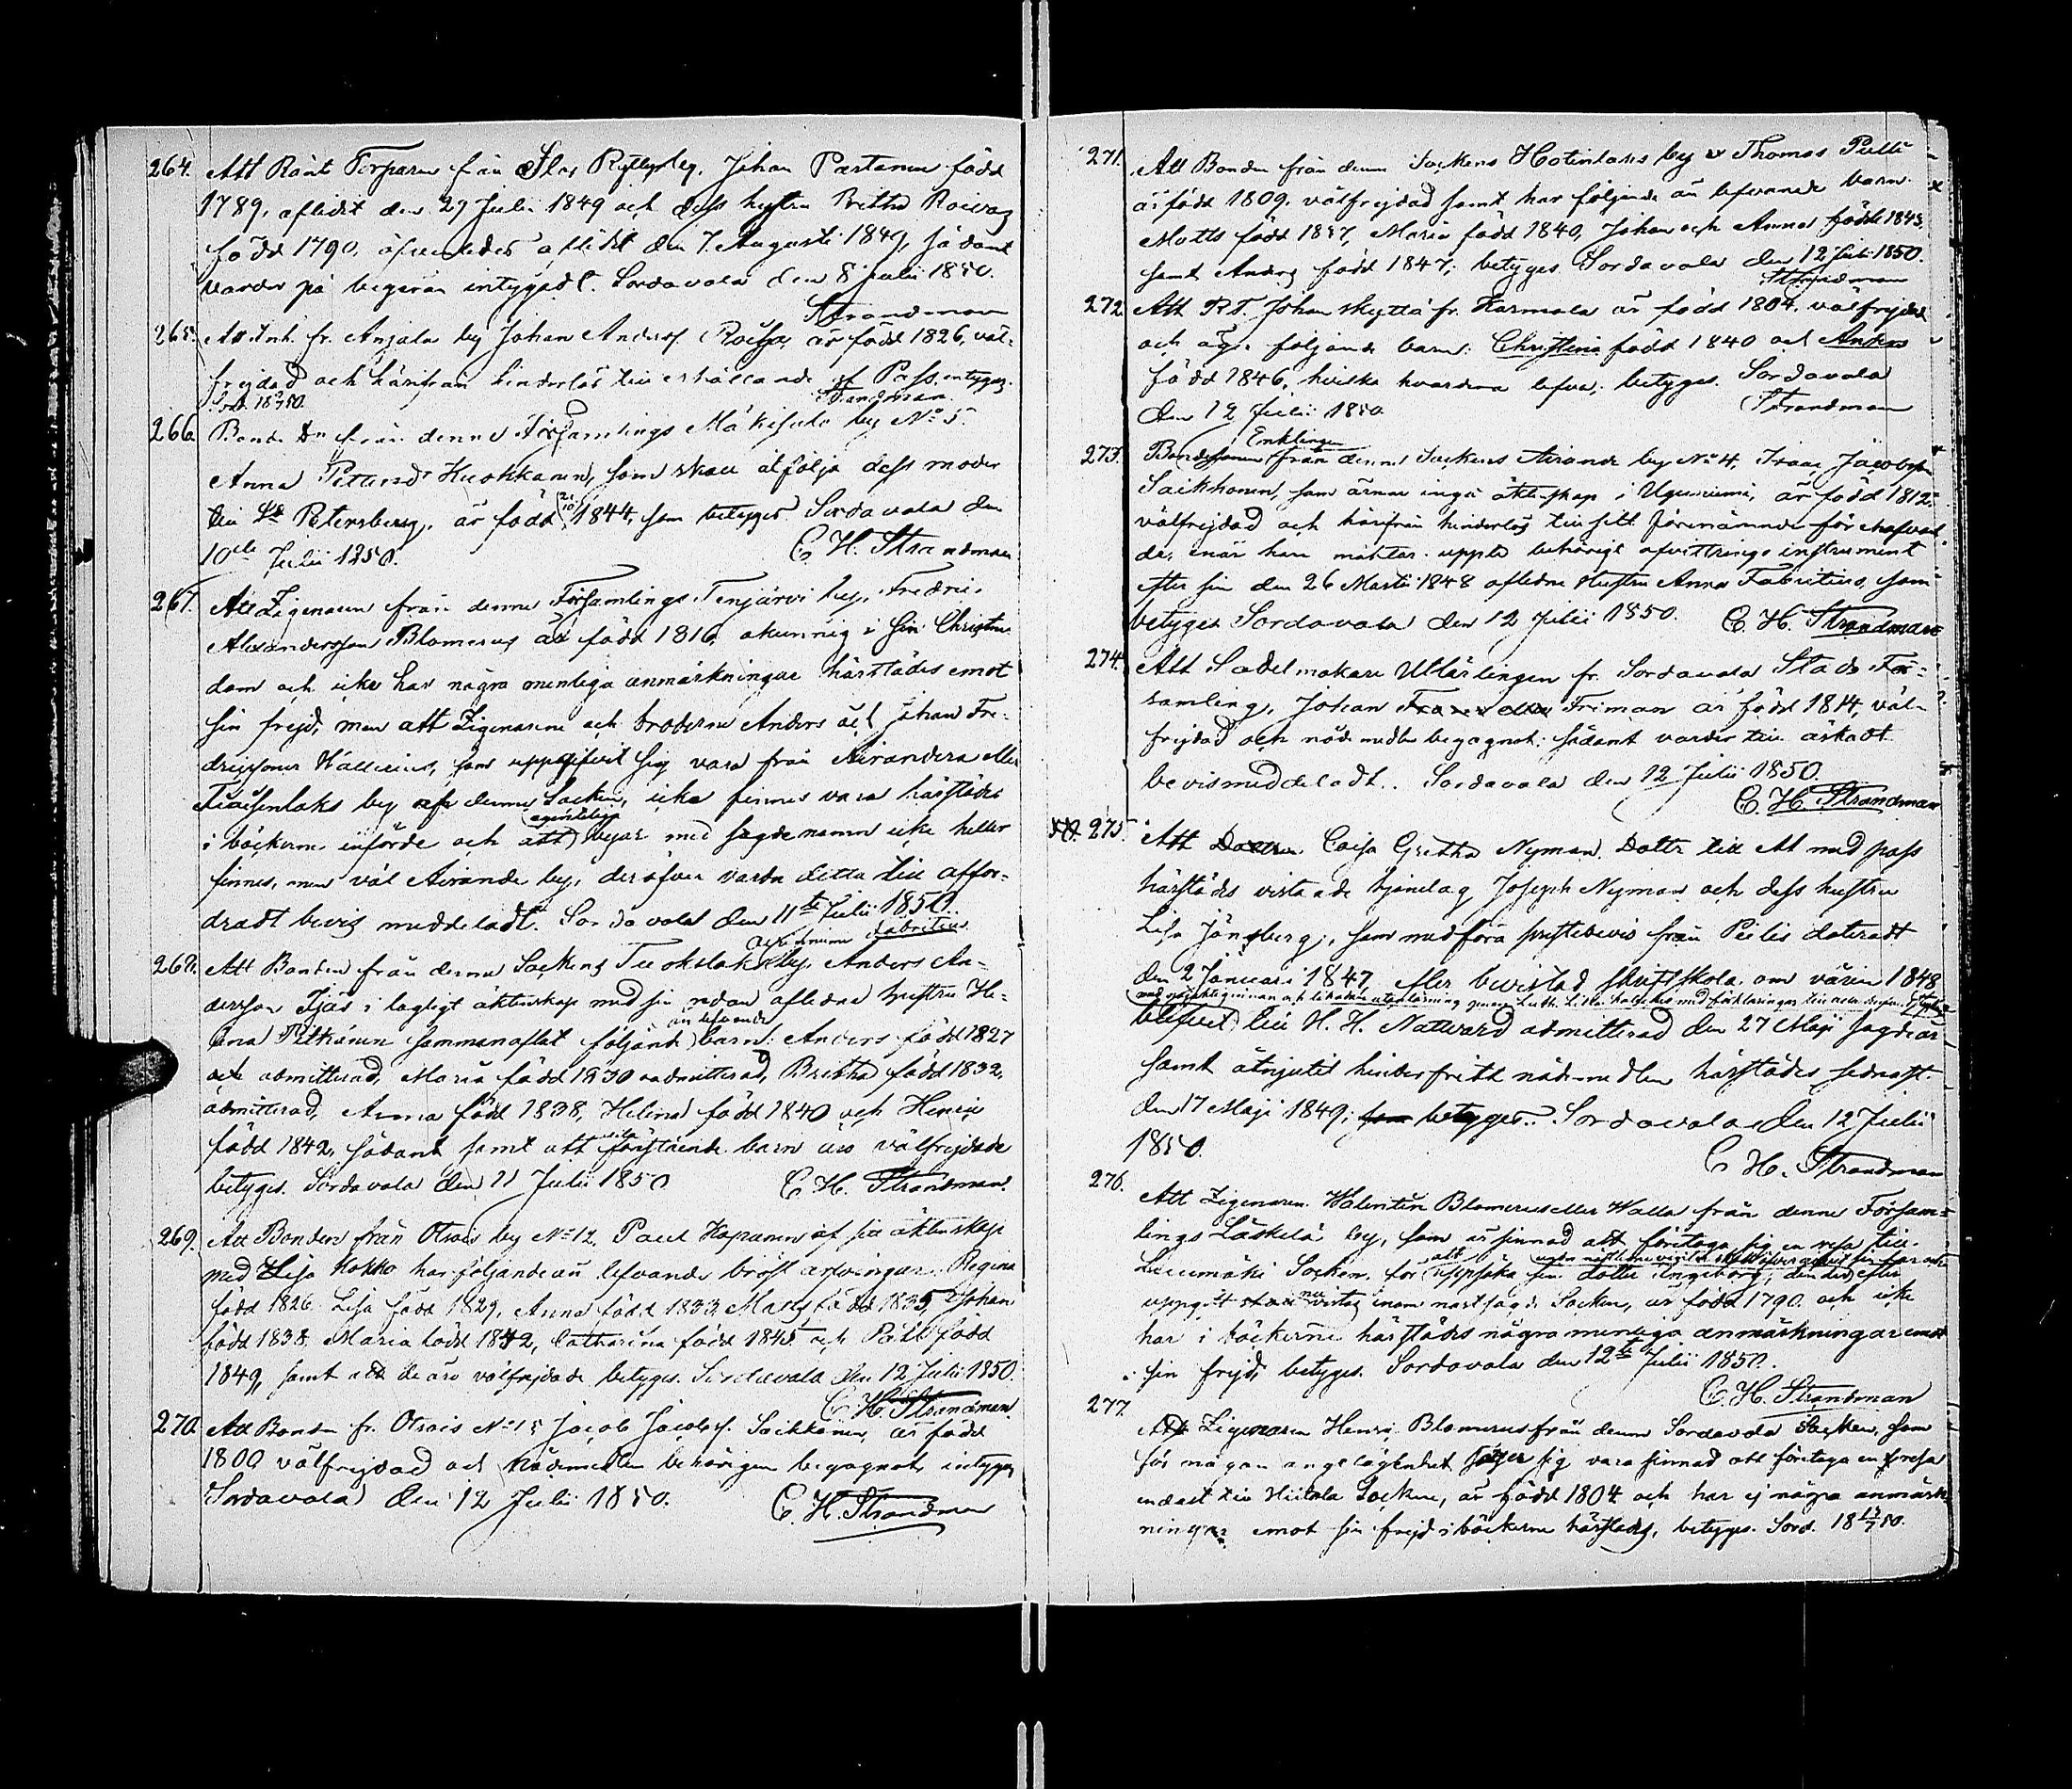 264. Att Ränt Torparen från Stor Rytty by, Johan Partanen född
1789, aflidit den 29 Julii 1849 och dess hustru Britha Roivas
född 1790, äfvenledes aflidit den 7. Augusti 1849, sådant
varder på begäran intygadt. Sordavala den 8 Julii 1850.
Strandman
265. Att Inh. fr. Anjala by Johan Anders. är född 1826, väl-
frejdad och härifrån hinderlös till erhållande af Pass, intygas.
Sord. 18 50. Strandman.
266. Bonde Dn från denna Församlings Mäkisalo by No 5.
Anna Pettersdr Huohkanen, som skall åtfölja dess moder
till St Petersburg, är född 1844, som betyges Sordavala den
10de Julii 1850. C. H. Strandman
267. Att Zigenaren från denna Församlings Tenjärvi by, Fredric
Alexandersson Blomerus är född 1816, okunnig i sin Christen
dom och icke har några menliga anmärkningar härstädes emot
sin frejd, men att Zigenarene och bröderne Anders och Johan Fre-
drikssöner Hällenius, som uppgifvit sig vara från Airandera eller
by af denna Socken, icke finnes vara härstädes
egenteliga
i böckerne införde och att byar med sagde namn icke heller
finnes, men väl Airanda by, deröfver varder detta till affor-
dradt bevis meddeladt. Sordavala den 11te Julii 1850.
Fabritius
268. Att Bonden från denna Sockens Tuokslaks by, Anders An-
dersson Tjäs i lagligt äktenskap med sin redan aflidna hustru He-
än lefvande
lena Pitkänen sammanaflat följande barn: Anders född 1827
och admitterad, Maria född 1830 admitterad, Britha född 1832,
admitterad, Anna född 1838, Helena född 1840 och Henric
född 1842, sådant samt att förestående barn äro välfrejdade
betyges. Sordavala den 11 Julii 1850 C. H. Strandman.
269. Att Bonden från Otrois by No 12. Paul Hapanen af sitt äktenskap
med Lisa Kokko har följande än lefvande bröst arfvingar: Regina
född 1826. Lisa född 1829, Anna född 1833, Matts född 1835, Johan
född 1838. Maria född 1842, Catharina född 1845 och Påhl född
1849, samt att de äro välfrejdade betyges. Sordavala den 12 Julii 1850.
C. H. Strandman.
270. Att Bonden fr. Otrois No 15 Jacob Jacobs. Saikkonen, är född
1800 välfrejdad och nådemedlen behörigen begagnat, intygas
Sordavala den 12 Julii 1850. C. H. Strandman
271. Att Bonden från denna Sockens Hotinlaks by Thomas Pulli
är född 1809. välfrejdad samt har följande än lefvande barn.
Matts född 1837, Maria född 1840, Johan och Anna födde 1843,
samt Anders född 1847; betyges Sordavala den 12 Julii 1850.
Strandman
272. Att R.T. Johan Skyttä fr. Karmala är född 1804, välfrejdad
och äger följande barn: Christina född 1840 och Anders
född 1846, hvilka hvardera lefva; betyges. Sordavala
den 12 Julii 1850. Strandman
Enklingen
273. Bondesonen från denna Sockens Airanda by No 4, Isaac Jacobsson
Saikkonen, som ärnar ingå äktenskap i Uguniemi, är född 1812.
välfrejdad och härifrån hinderlös till sitt förenämnde förehafvan-
de, enär han mäktar uppte behörigt afvittrings instrument
efter sin den 26 Martii 1848 aflidne Hustru Anna Fabritius, som
betyges Sordavala den 12 Julii 1850. C. H. Strandman
274. Att Sadelmakare Utlärlingen fr. Sordavala Stads För-
samling, Johan Friman är född 1814, väl-
frejdad och nådemedlen begagnat; sådant varder till äskadt
bevis meddeladt. Sordavala den 12 Julii 1850.
C. H. Strandman
275. Att Caisa Gretha Nyman. Dotter till Et med pass
härstädes vistande Joseph Nyman och dess hustru
Lisa Jöngberg, som medföra prestebevis från Peilis dateradt
den 2 Januarii 1847, efter bevistad skriftskola om våren 1848
blifvit till H. H. Nattvard admitterad den 27 Maji sagde år
samt åtnjutit hinderfritt nådemedlen härstädes sednast
den 17 Maji 1849; betyges. Sordavala den 12 Julii
1850.
C. H. Strandman
276. Att Zigenaren Walentin Blomerus eller Halla från denna Försam-
lings Läskelä by, som är sinnad att företaga sig en resa till
Socken, för att uppsöka sin dotter Ingeborg,
uppgift vistas inom nästsagde Socken, är född 1790. och icke
har i böckerne härstädes några menliga anmärkningar emot
sin frejd, betyges. Sordavala den 12te Julii 1850.
C. H. Strandman
277. Att Zigenaren Henric Blomerus från denna Sordavala Socken, som
för någon angelägenhet säger sig vara sinnad att företaga en resa
endast till Hiitola Socken, är född 1804 och har ej några anmärk-
ningar emot sin frejd i böckerne härstädes, betyges. Sord. 18 50.